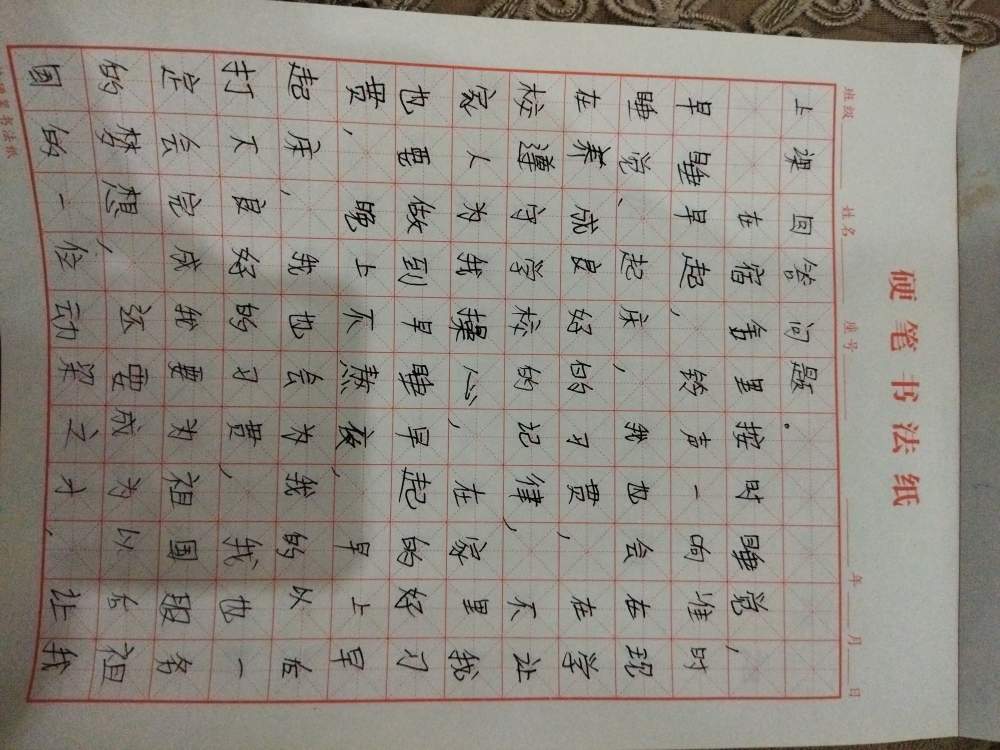 硬笔书法纸
班级 姓名 座号 年 月 日
上课回答问题。
在宿舍里按时睡觉，
早睡早起，铃声一响准时
睡觉、起床，我也会在现
在养成良好的习贯，在学
校遵守学校的记律，不让
家人为我操心，在家里我
也要做到早睡早起的好习
贯，晚上不熬夜，早上早
起床，我也会为我的以后
打下良好的习贯，我也一
定会完成我要为祖国服务
的梦想，还要成为以后祖
国的一位动梁之才，让我
书法纸